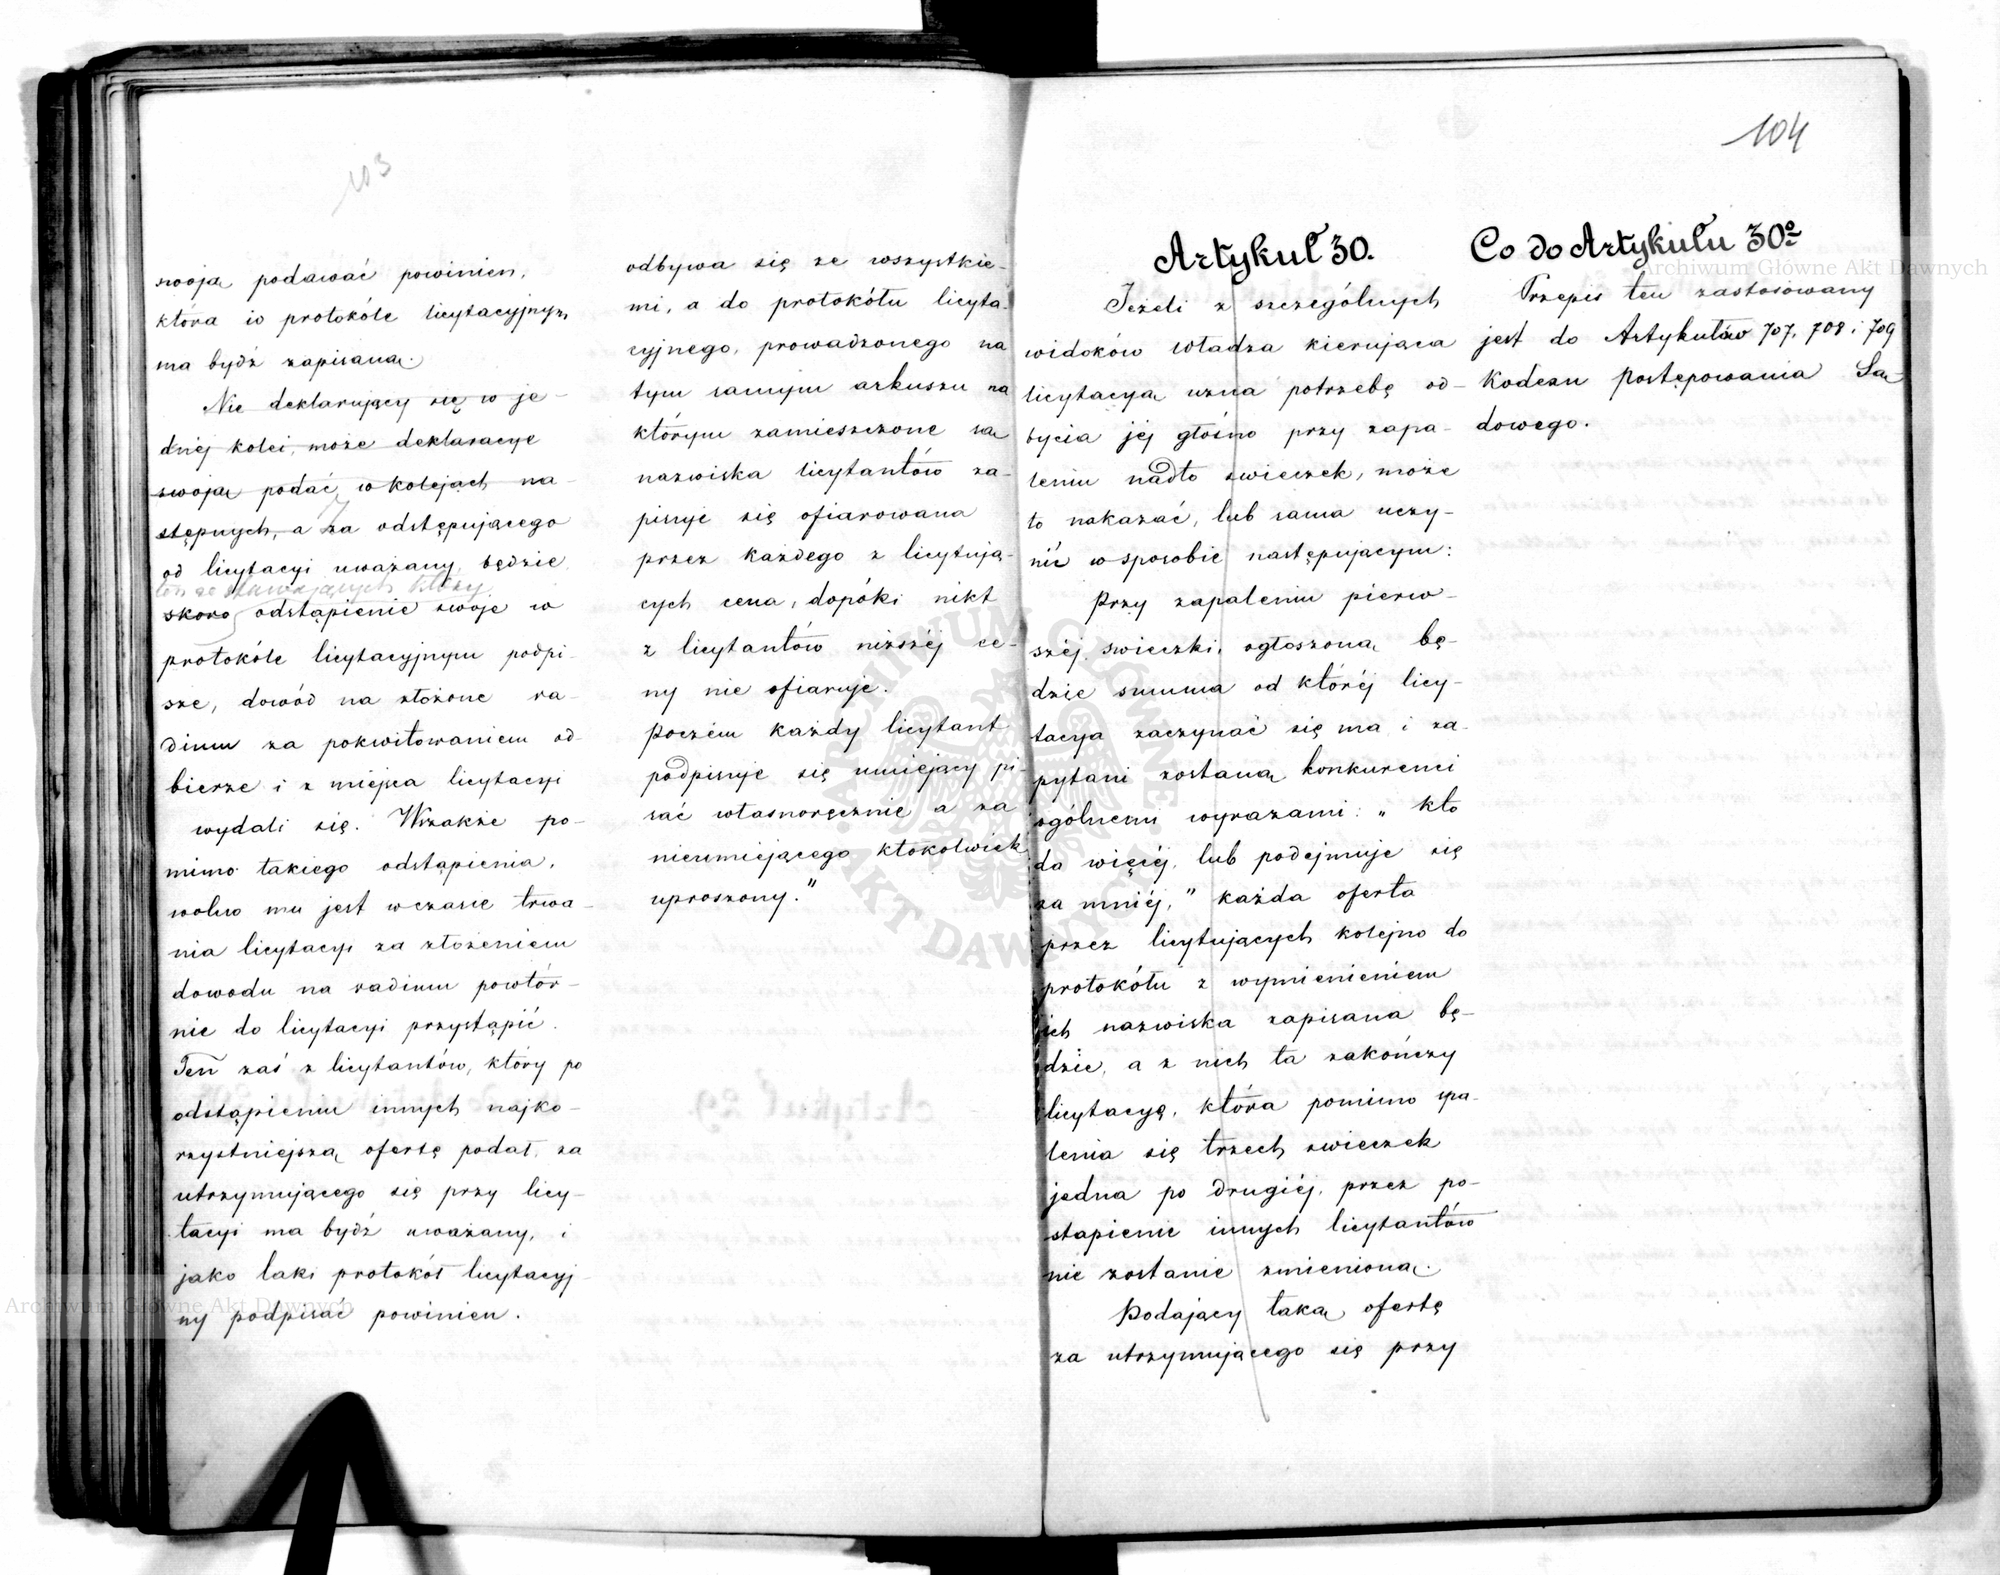 103
swoją podawać powinien,
która w protokóle licytacyjnym
ma bydź zapisaną.
Nie deklarujący się w je-
dnéj kolei, może deklaracye
swoją podać w kolejach na-
stępnych, a za odstępującego
od licytacyi uważany będzie
ten ze stawających który
skoro odstąpienie swoje w
protokóle licytacyjnym podpi-
sze, dowód na złożone va-
dium za pokwitowaniem od-
bierze i z miejsca licytacyi
wydali się. Wszakże po-
mimo takiego odstąpienia,
wolno mu jest wczasie trwa-
nia licytacyi za złożeniem
dowodu na vadium powtór-
nie do licytacyi przystąpić.
Ten zaś z licytantów, który po
odstąpieniu innych najko-
rzystniejszą ofertę podał, za
utrzymującego się przy licy-
tacyi ma bydź uważany, i
jako taki protokół licytacyj-
ny podpisać powinien.
odbywa się ze wszystkie-
mi, a do protokółu licyta-
cyjnego, prowadzonego na
tym samym arkuszu na
którym zamieszczone są
nazwiska licytantów za-
pisuje się ofiarowana
przez każdego z licytują-
cych cena, dopóki nikt
z licytantów niższéj ce-
ny nie ofiaruje.
Poczém każdy licytant
podpisuje się umiejący pi-
sać własnoręcznie a za
nieumiejącego ktokolwiek
uproszony."
104
Artykuł 30.
Jeżeli z szczególnych
widoków Władza kierująca
licytacyą uzna potrzebę od-
bycia jéj głośno przy zapa-
leniu nadto swieczek, może
to nakazać, lub sama uczy-
nić w sposobie następującym:
Przy zapaleniu pierw-
széj swieczki, ogłoszoną bę-
dzie summa od któréj licy-
tacya zaczynać się ma i za-
pytani zostaną konkurenci
ogólnemi wyrazami: „kto
da więcéj, lub podejmuje się
za mniéj," każda oferta
przez licytujących kolejno do
protokółu z wymienieniem
ich nazwiska zapisana bę-
dzie, a z nich ta zakończy
licytacyę, która pomimo spa-
lenia się trzech swieczek
jedna po drugiéj, przez po-
stąpienie innych licytantów
nie zostanie zmienioną.
Podający taką ofertę
za utrzymującego się przy
Co do Artykułu 30º
Przepis ten zastosowany
jest do Artykułów 707, 708 i 709
Kodexu Postępowania Są-
dowego.
Archiwum Główne Akt Dawnych
Archiwum Główne Akt Dawnych
ARCHIWUM GŁÓWNE AKT DAWNYCH